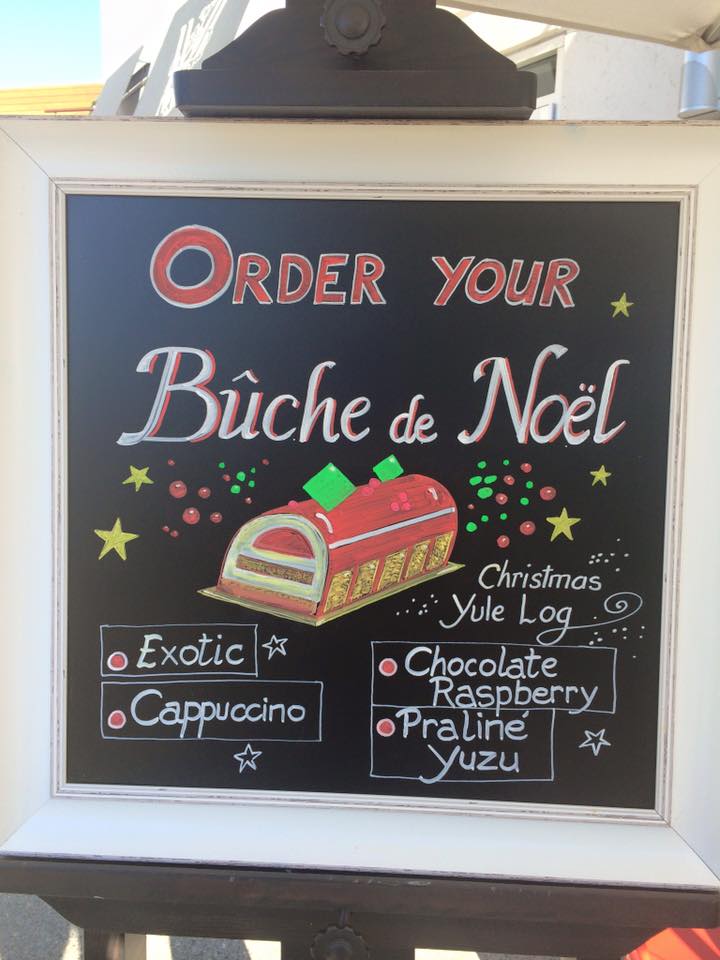 ORDER YOUR
Bûche de Noël
Christmas
Yule Log
Exotic
Cappuccino
Chocolate
Raspberry
Praliné
Yuzu